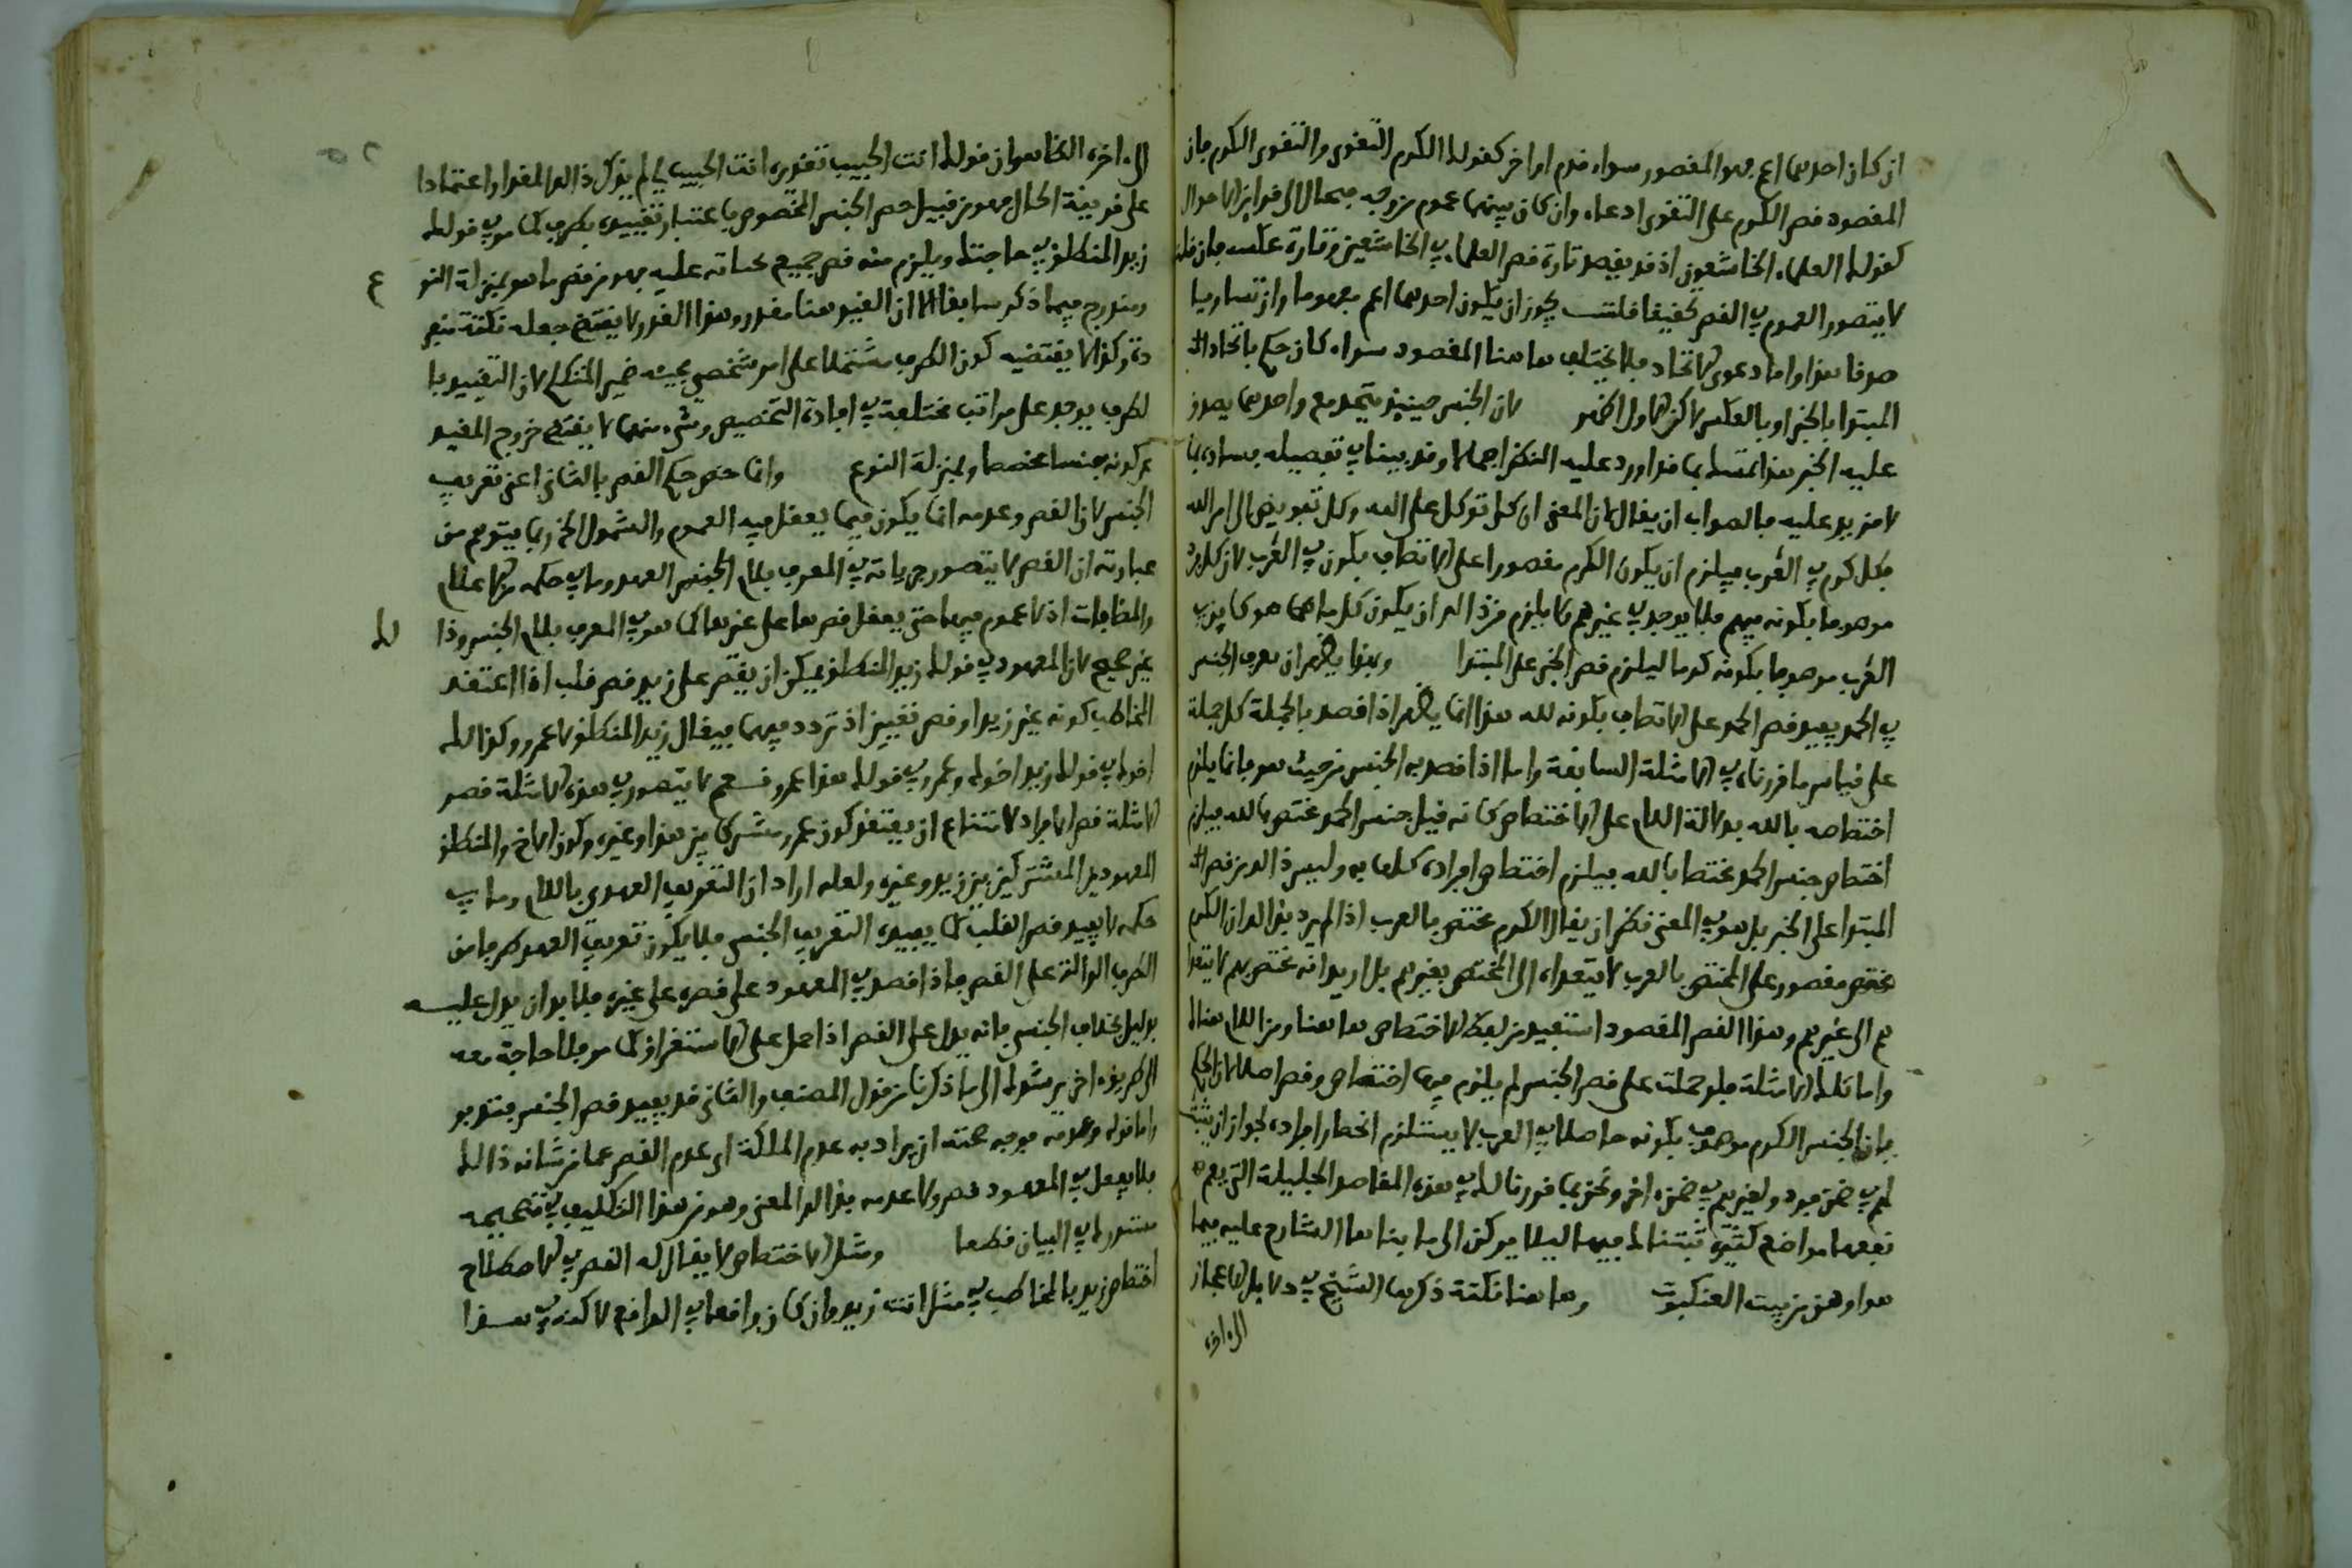 ان كان احدهما اعم فهو المقصور سواء قدم او اخر كقولك الكرم التقوى والتقوى الكرم فان
المقصود قصر الكرم على التقوى ادعاء وان كان بينهما عموم من وجه فيحال الى قراين الاحوال
كقولك العلماء الخاشعون اذ قد يقصد تارة قصر العلماء في الخاشعين وتارة عكسه فان قلت
لا يتصور العموم في القصر تحقيقا قلت يجوز ان يكون احدهما اعم مفهوما وان تساويا
صدقا هذا واما دعوى الاتحاد فلا يختلف هاهنا المقصود سواء كان حكم باتحاد
المبتدا بالخبر او بالعكس لاكن الاول اظهر لان الجنس حينيذ يتحد مع واحد مما يصدق
عليه الخبر هذا تمسك بما قد اورد عليه النظر اجمالا وقد بينا في تفصيله فساده بما
لا مزيد عليه فالصواب ان يقال لان المعنى ان كل توكل على الله وكل تفويض الى امر الله
فكل كرم في العرب فيلزم ان يكون الكرم مقصورا على الاتصاف بكون في العرب لان كل كرم
موصوف بكونه فيهم فلا يوجد في غيرهم ولا يلزم من ذالك ان يكون كل ما هو كاين في
العرب موصوفا بكونه كرما ليلزم قصر الخبر على المبتدا وبهذا يظهر ان تعريف الجنس
في الحمد يفيد قصر الحمد على الاتصاف بكونه لله هذا انما يظهر اذا قصد بالجملة كل جملة
على قياس ما قررناه في الامثلة السابقة واما اذا قصد به الجنس من حيث هو فانما يلزم
اختصاصه بالله بدلالة اللام على الاختصاص كانه قيل جنس الحمد مختص بالله فيلزم
اختصاص جنس الحمد مختصا بالله فيلزم اختصاص افراده كلها به وليس ذالك من قصر
المبتدا على الخبر بل هو في المعنى نظير ان يقال الكرم مختص بالعرب اذا لم يرد بذالك ان الكرم
مختص مقصور على المختص بالعرب لا يتعداه الى المختص بغيرهم بل اريد انه مختص بهم لا يتعدا
هم الى غيرهم وهذا القصر المقصود استفيد من لفظ الاختصاص هاهنا ومن اللام هنالك
واما تلك الامثلة فلو حملت على قصر الجنس لم يلزم فيها اختصاص وقصر اصلا لان الحكم
بان الجنس الكرم موصوف بكونه حاصلا في العرب لا يستلزم انحصار افراده لجواز ان يثبت
لهم في ضمن فرد ولغيرهم في ضمن اخر ونحن بما قررنا لك في هذه المقاصد الجليلة التي يعم
نفعها مواضع كثيرة ثبتنا لك فيها ليلا تركن الى ما بناها الشارح عليه فيما
هو اوهن من بيت العنكبوت وهاهنا نكتة ذكرها الشيخ في دلايل الاعجاز
الى اخره
الى اخره الخامس ان قولك انت الحبيب تقديره انت الحبيب لي لم يذكر ذالك المقدر اعتمادا
على قرينة الحال فهو من قبيل حصر الجنس المخصوص باعتبار تقييده بظرف كما مر في قولك
زيد المنطلق في حاجتك ويلزم منه قصر جميع محباته عليه فهو من قصر ما هو بمنزلة النوع
ومندرج فيما ذكر سابقا الا ان القيد هنا مقدر وهذا القدر لا يقتضي جعله نكتة متعد
دة وكذا لا يقتضيه كون الظرف مشتملا على امر شخصي بحيث ضمير المتكلم لان التقييد با
لظرف يوجد على مراتب مختلفة في افادة التخصيص وشيء منها لا يقتضي خروج المقيد
عن كونه جنسا مخصصا وبمنزلة النوع وانما خص حكم القصر بالثاني اعني تعريف
الجنس لان القصر وعدمه انما يكون فيما يعقل فيه العموم والشمول الخ ربما يتوهم من
عبارته ان القصر لا يتصور جريانه في المعرف بلام الجنس العهد وما في حكمه من الاعلام
والمضافات اذ لا عموم فيها حتى يعقل قصرها على غيرها كما هو في المعرف بلام الجنس وذا لك
غير صحيح لان المعهود في قولك زيد المنطلق يمكن ان يقصر على زيد قصر قلب اذا اعتقد
المخاطب كونه غير زيد او قصر تعيين اذ تردد فيهما فيقال زيد المنطلق لا عمرو وكذا الك
اخوك في قولك زيد اخوك وعمرو في قولك هذا عمرو نعم لا يتصور في هذه الامثلة قصر
الامثلة قصر الافراد لامتناع ان يعتقد كون عمرو مشتركا بين هذا وغيره وكون الاخ والمنطلق
المعهودين المشتركين بين زيد وغيره ولعله اراد ان التعريف العهدي باللام وما في
حكمه لا يفيد قصر القلب كما يفيده التعريف الجنسي فلا يكون تعريف العهد طريقا من
الطرق الدالة على القصر فاذا قصد في المعهود على قصره على غيره فلا بد ان يدل عليه
بدليل بخلاف الجنس فانه يدل على القصر اذا حمل على الاستغراق كما مر فلا حاجة معه
الى طريق اخر يرشدك الى ما ذكرنا من قول المصنف والثاني قد يفيد قصر الجنس فتدبر
واما قوله وعدمه فوجه صحته ان يراد به عدم الملكة اي عدم القصر عما من شانه ذالك
فلا يعقل في المعهود قصر ولا عدمه بذالك المعنى وهو من هذا التكليف في تصحيحه
مستدرك في البيان قطعا ومثل الاختصاص لا يقال له القصر في الاصطلاح
اختصاص زيد بالمخاطب في مثل انت زيد وان كان واقعا في الواقع لاكنه في هذا